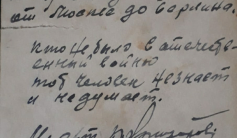 от Москвы до Берлина.
кто не было в отечеств
енний войну
тот человек не знает
и не думает.